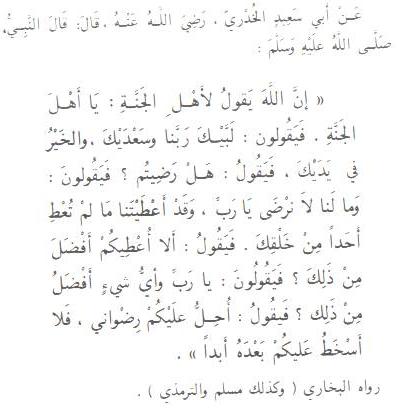 عَـنْ أبي سَعِيدٍ الخُدْريّ ، رَضِيَ اللَّـهُ عَنْـهُ ، قَالَ: قَالَ النَّبِيُّ،
صَلَّـى اللَّهُ عَلَيْهِ وَسَلَّمَ :
« إنَّ اللَّهَ يَقولُ لأهْـلِ الجَنَّـةِ : يَا أهْـلَ
الجَنَّةِ . فَيَقُولون : لَبَّيْـكَ رَبَّنا وَسَعْدَيْكَ ، والخَيْرُ
في يَدَيْكَ ، فَيَقُولُ : هَـلْ رَضِيتُم ؟ فَيَقُولونَ :
وَما لَنا لا نَرْضَى يَا رَبِّ ، وَقَدْ أعْطَيْتَنا مَا لمْ تُعْطِ
أحَداً مِنْ خَلْقِكَ . فَيَقُولُ : ألا أُعْطِيكُمْ أفْضَلَ
مِنْ ذَلِكَ ؟ فَيَقُولُونَ : يا رَبِّ وأيُّ شيءٍ أفْضَلُ
مِنْ ذَلِك ؟ فَيقُولُ : أُحِـلُّ علَيْكُمْ رِضْواني ، فَلا
أسْخَطُ عَليكُمْ بَعْدَهُ أبداً » .
رواه البخاري ( وكذلك مسلم والترمذي ) .